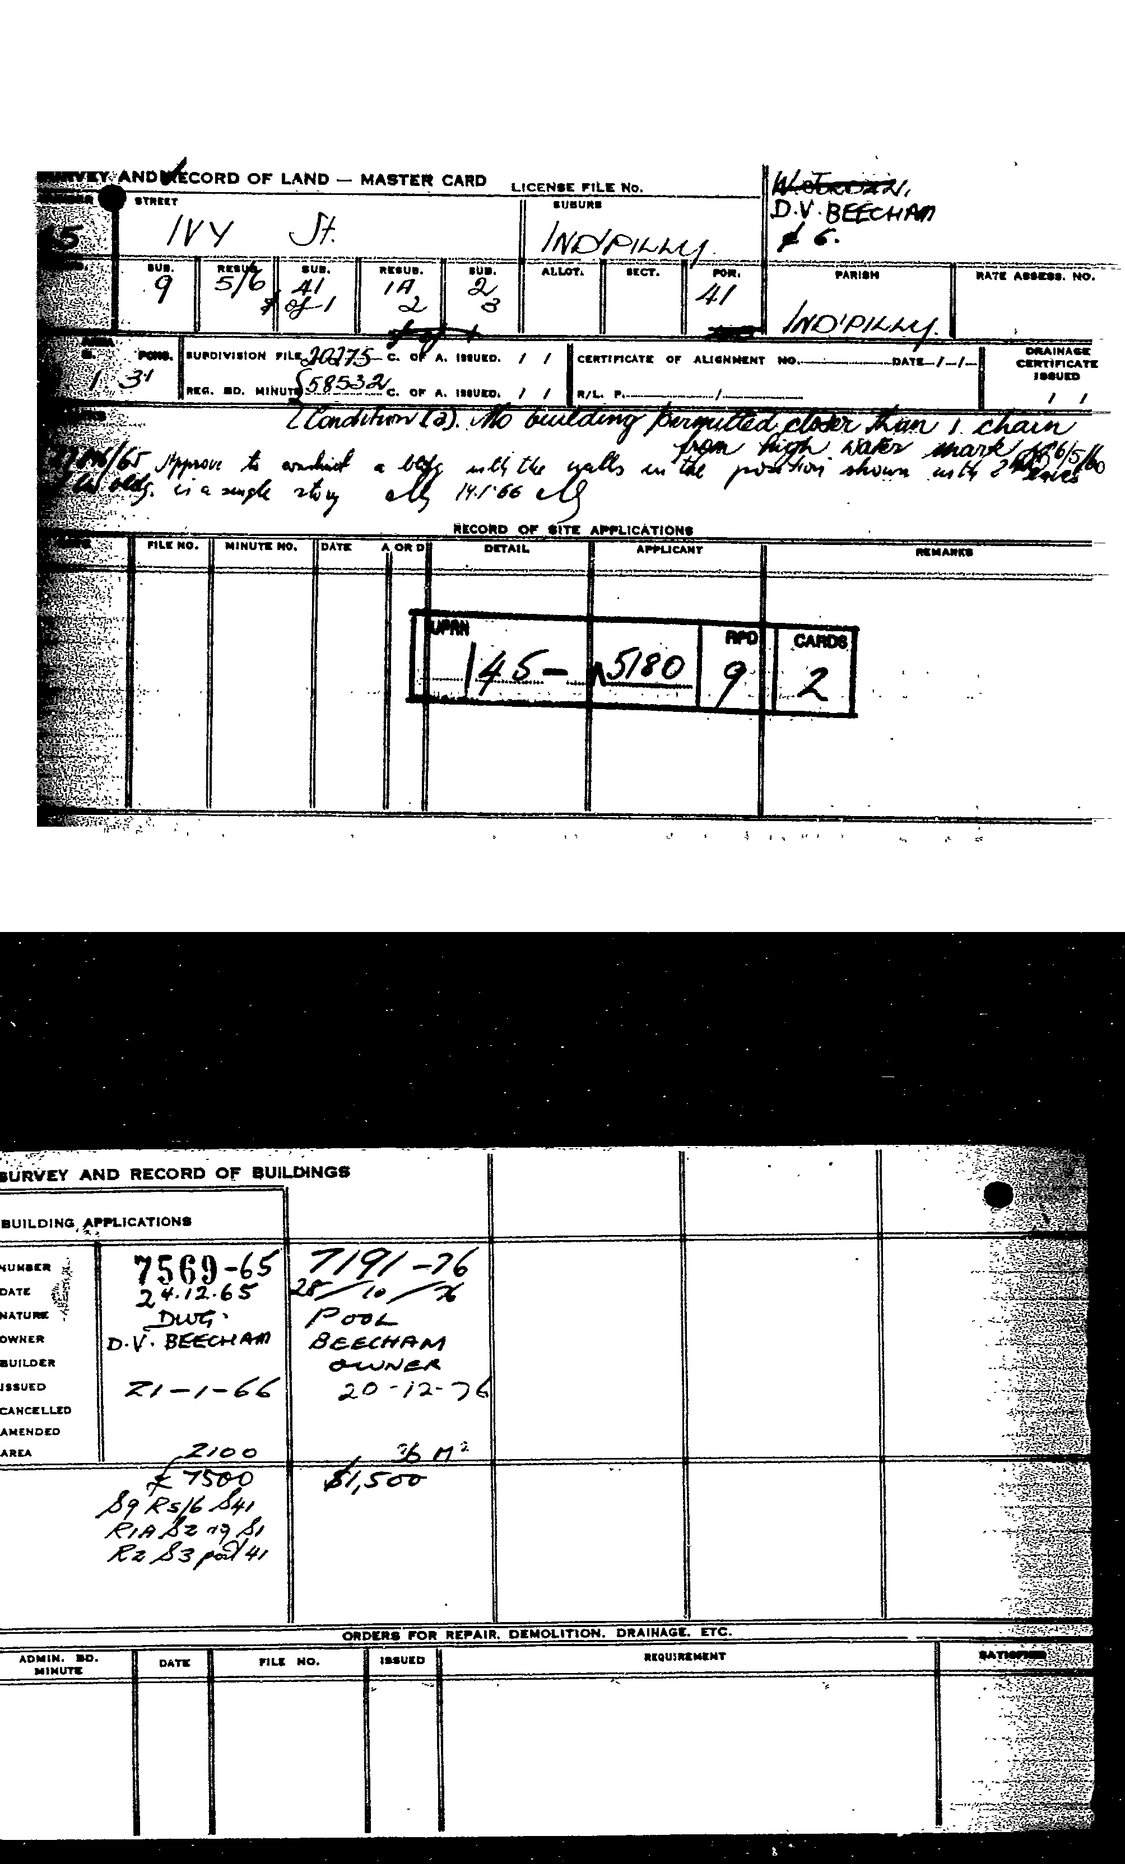 SURVEY AND RECORD OF LAND — MASTER CARD
LICENSE FILE No.
D.V. BEECHAM
6.
STREET
SUBURB
IVY St.
IND'PILLY
SUB. RESUB. SUB. RESUB. SUB. ALLOT. SECT. POR. PARISH RATE ASSESS. NO.
9 5/6 41 1A 2 41
of 1 2 3
IND'PILLY
PCHS. SUBDIVISION FILE 20275 C. OF A. ISSUED. / / CERTIFICATE OF ALIGNMENT NO. DATE / / DRAINAGE CERTIFICATE ISSUED
1 31 REG. BD. MINUTE 58532 C. OF A. ISSUED. / / R/L. P. / / /
Condition (a). No building permitted closer than 1 chain
from high water mark 6/5/60
/65 Approve to conduct a bldg with the walls in the position shown with
bldg. is a single story 14.1.66
RECORD OF SITE APPLICATIONS
FILE NO. MINUTE NO. DATE A OR D DETAIL APPLICANT REMARKS
UPRN RPD CARDS
145 - 5180 9 2
SURVEY AND RECORD OF BUILDINGS
BUILDING APPLICATIONS
NUMBER 7569-65 7191-76
DATE 24.12.65 28/10/76
NATURE DWG. POOL
OWNER D.V. BEECHAM BEECHAM
BUILDER OWNER
ISSUED 21-1-66 20-12-76
CANCELLED
AMENDED
AREA 2100 36 M²
£ 7500 $1,500
S9 R5/6 S41
R1A S2 of S1
R2 S3 por 41
ORDERS FOR REPAIR, DEMOLITION, DRAINAGE, ETC.
ADMIN. BD. MINUTE DATE FILE NO. ISSUED REQUIREMENT SATISFIED